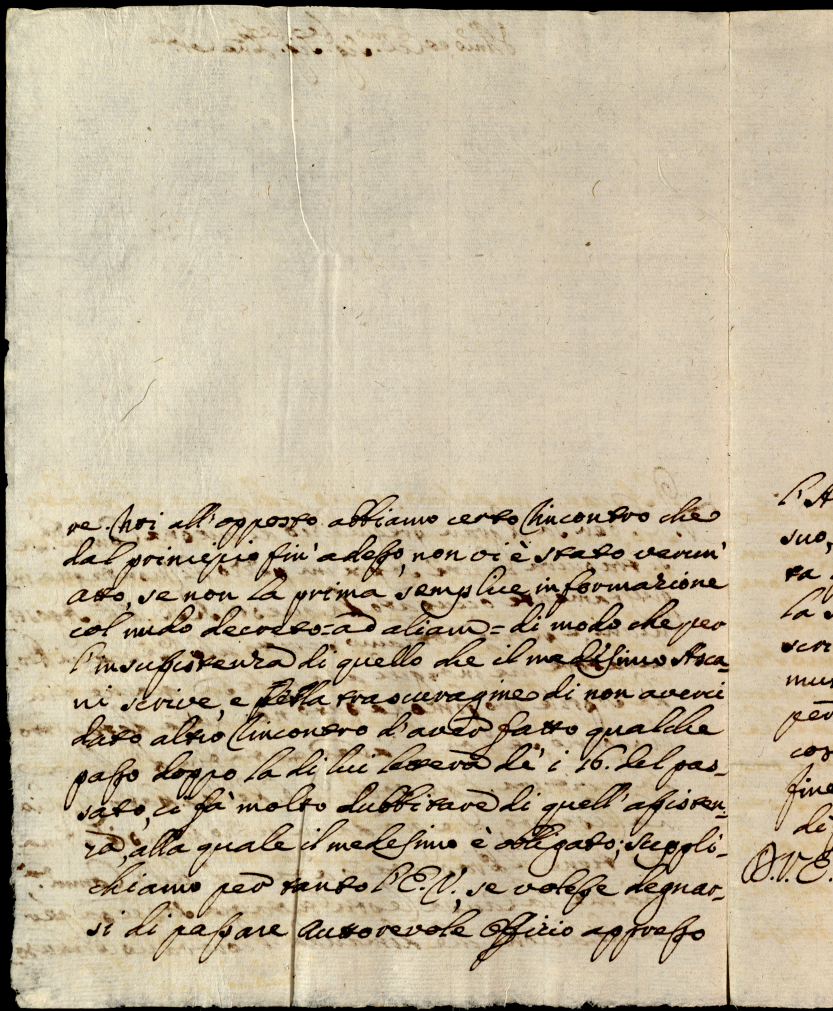 re. Noi all'opposto abbiamo certo rincontro che
dal principio fin'adesso, non vi è stato verun'
atto, se non la prima semplice informazione
col nudo decreto = ad aliam = di modo che per
l'insussistenza di quello che il medesimo Asca-
ni scrive, e della trascuragine di non averci
dato altro rincontro d'aver fatto qualche
passo doppo la di lui lettera de' i 16. del pas-
sato, ci fà molto dubbitare di quell'assisten-
za, alla quale il medesimo è obbligato; suppli-
chiamo per tanto l'E.V., se volesse degnar-
si di passare autorevole Officio appresso
l'A
suo,
ta
la
scri
mun
per
cor
fine
di
D.V.E.